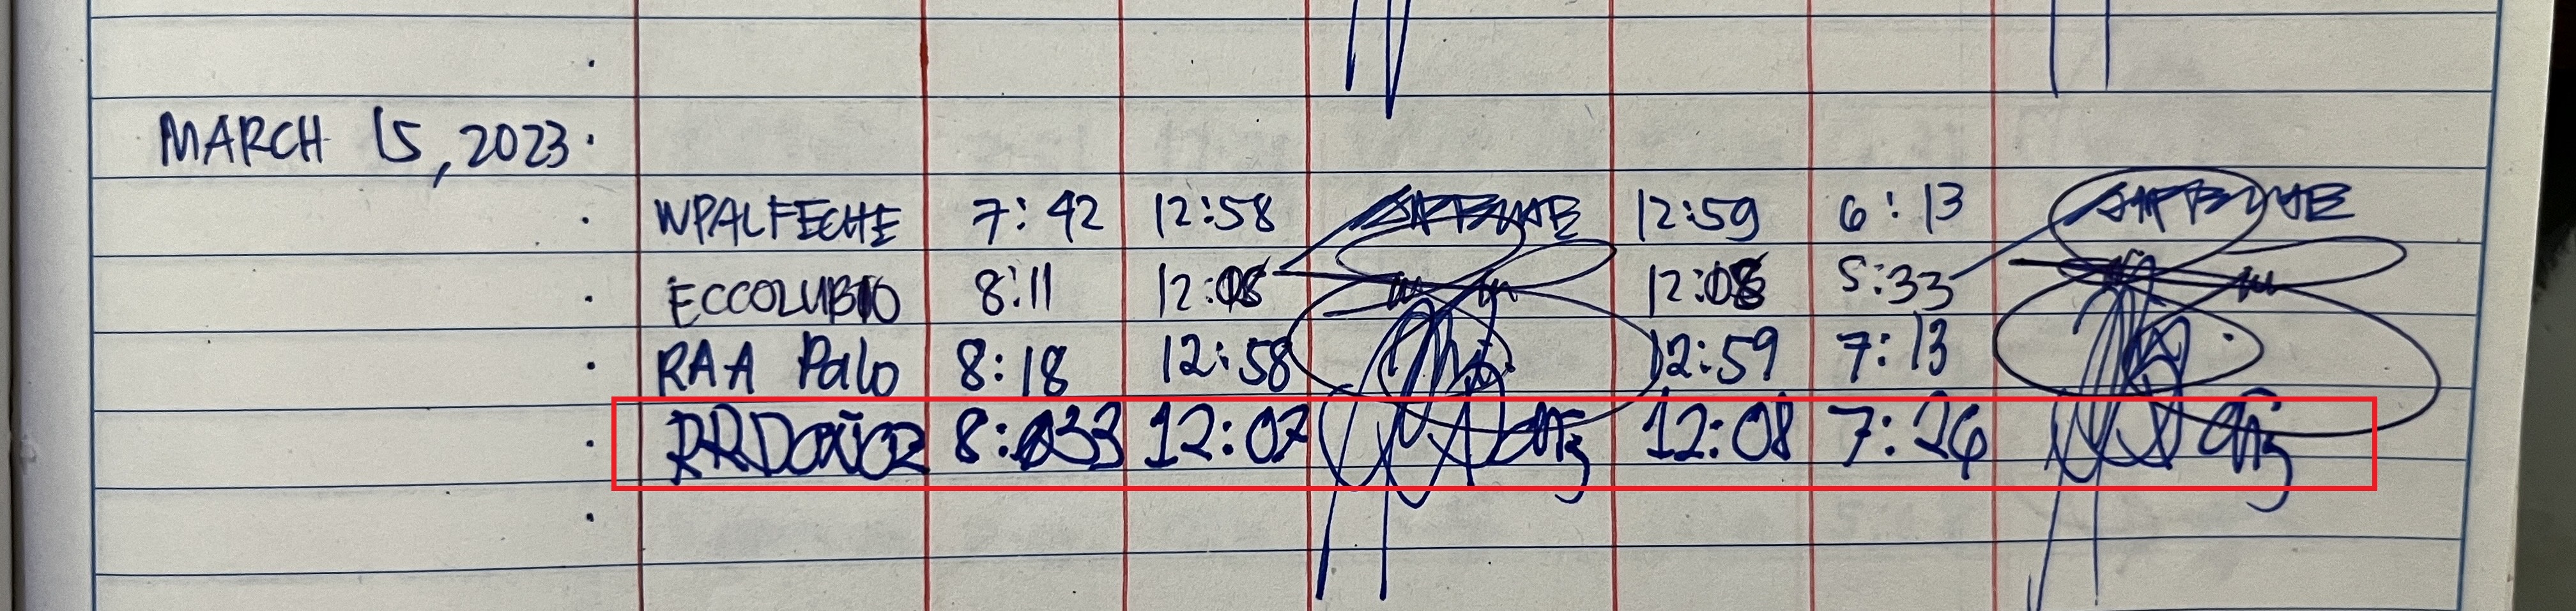 MARCH 15, 2023
WPALFECHE 7:42 12:58 12:59 6:13
ECCOLUBIO 8:11 12:08 12:08 5:33
RAA Palo 8:18 12:58 12:59 7:13
RRDoñoz 8:33 12:07 12:08 7:26